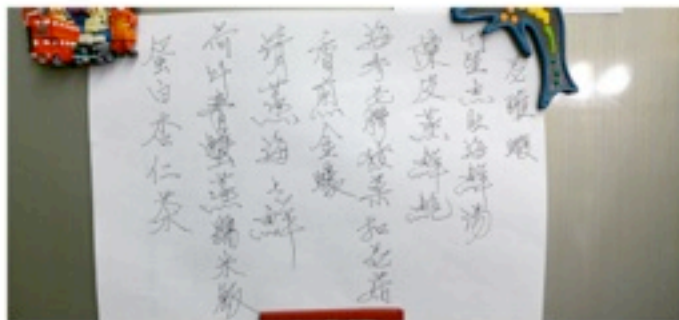 虎蝦
竹笙魚肚海鮮湯
陳皮蒸鮮鮑
海參花膠扒菜和花菇
香煎金蠔
清蒸海上鮮
荷叶膏蟹蒸糯米飯
蛋白杏仁茶